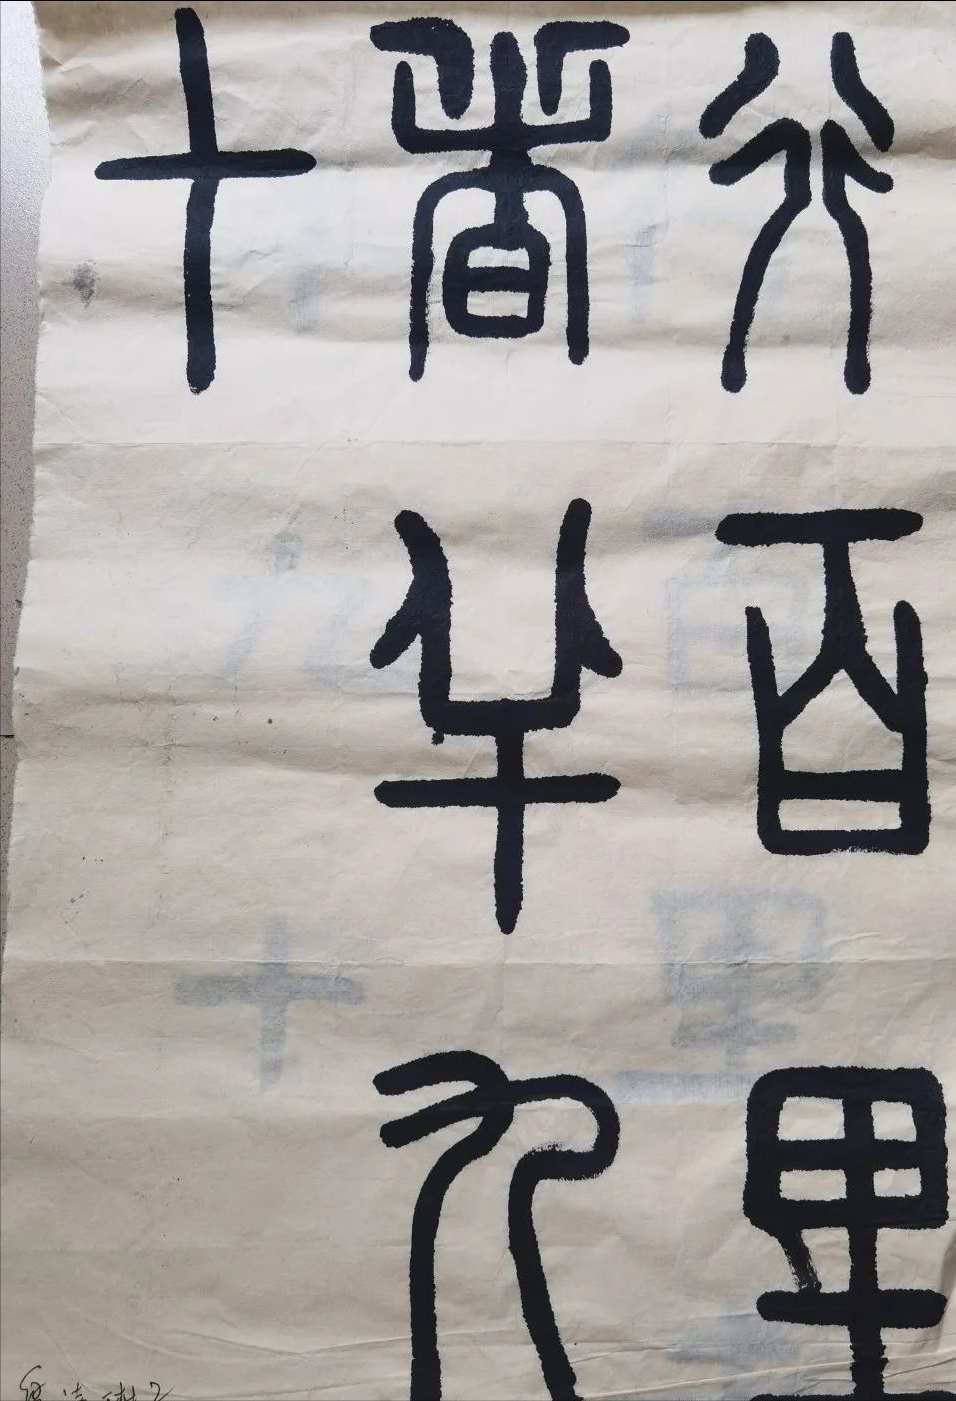 行百里
者半九
十